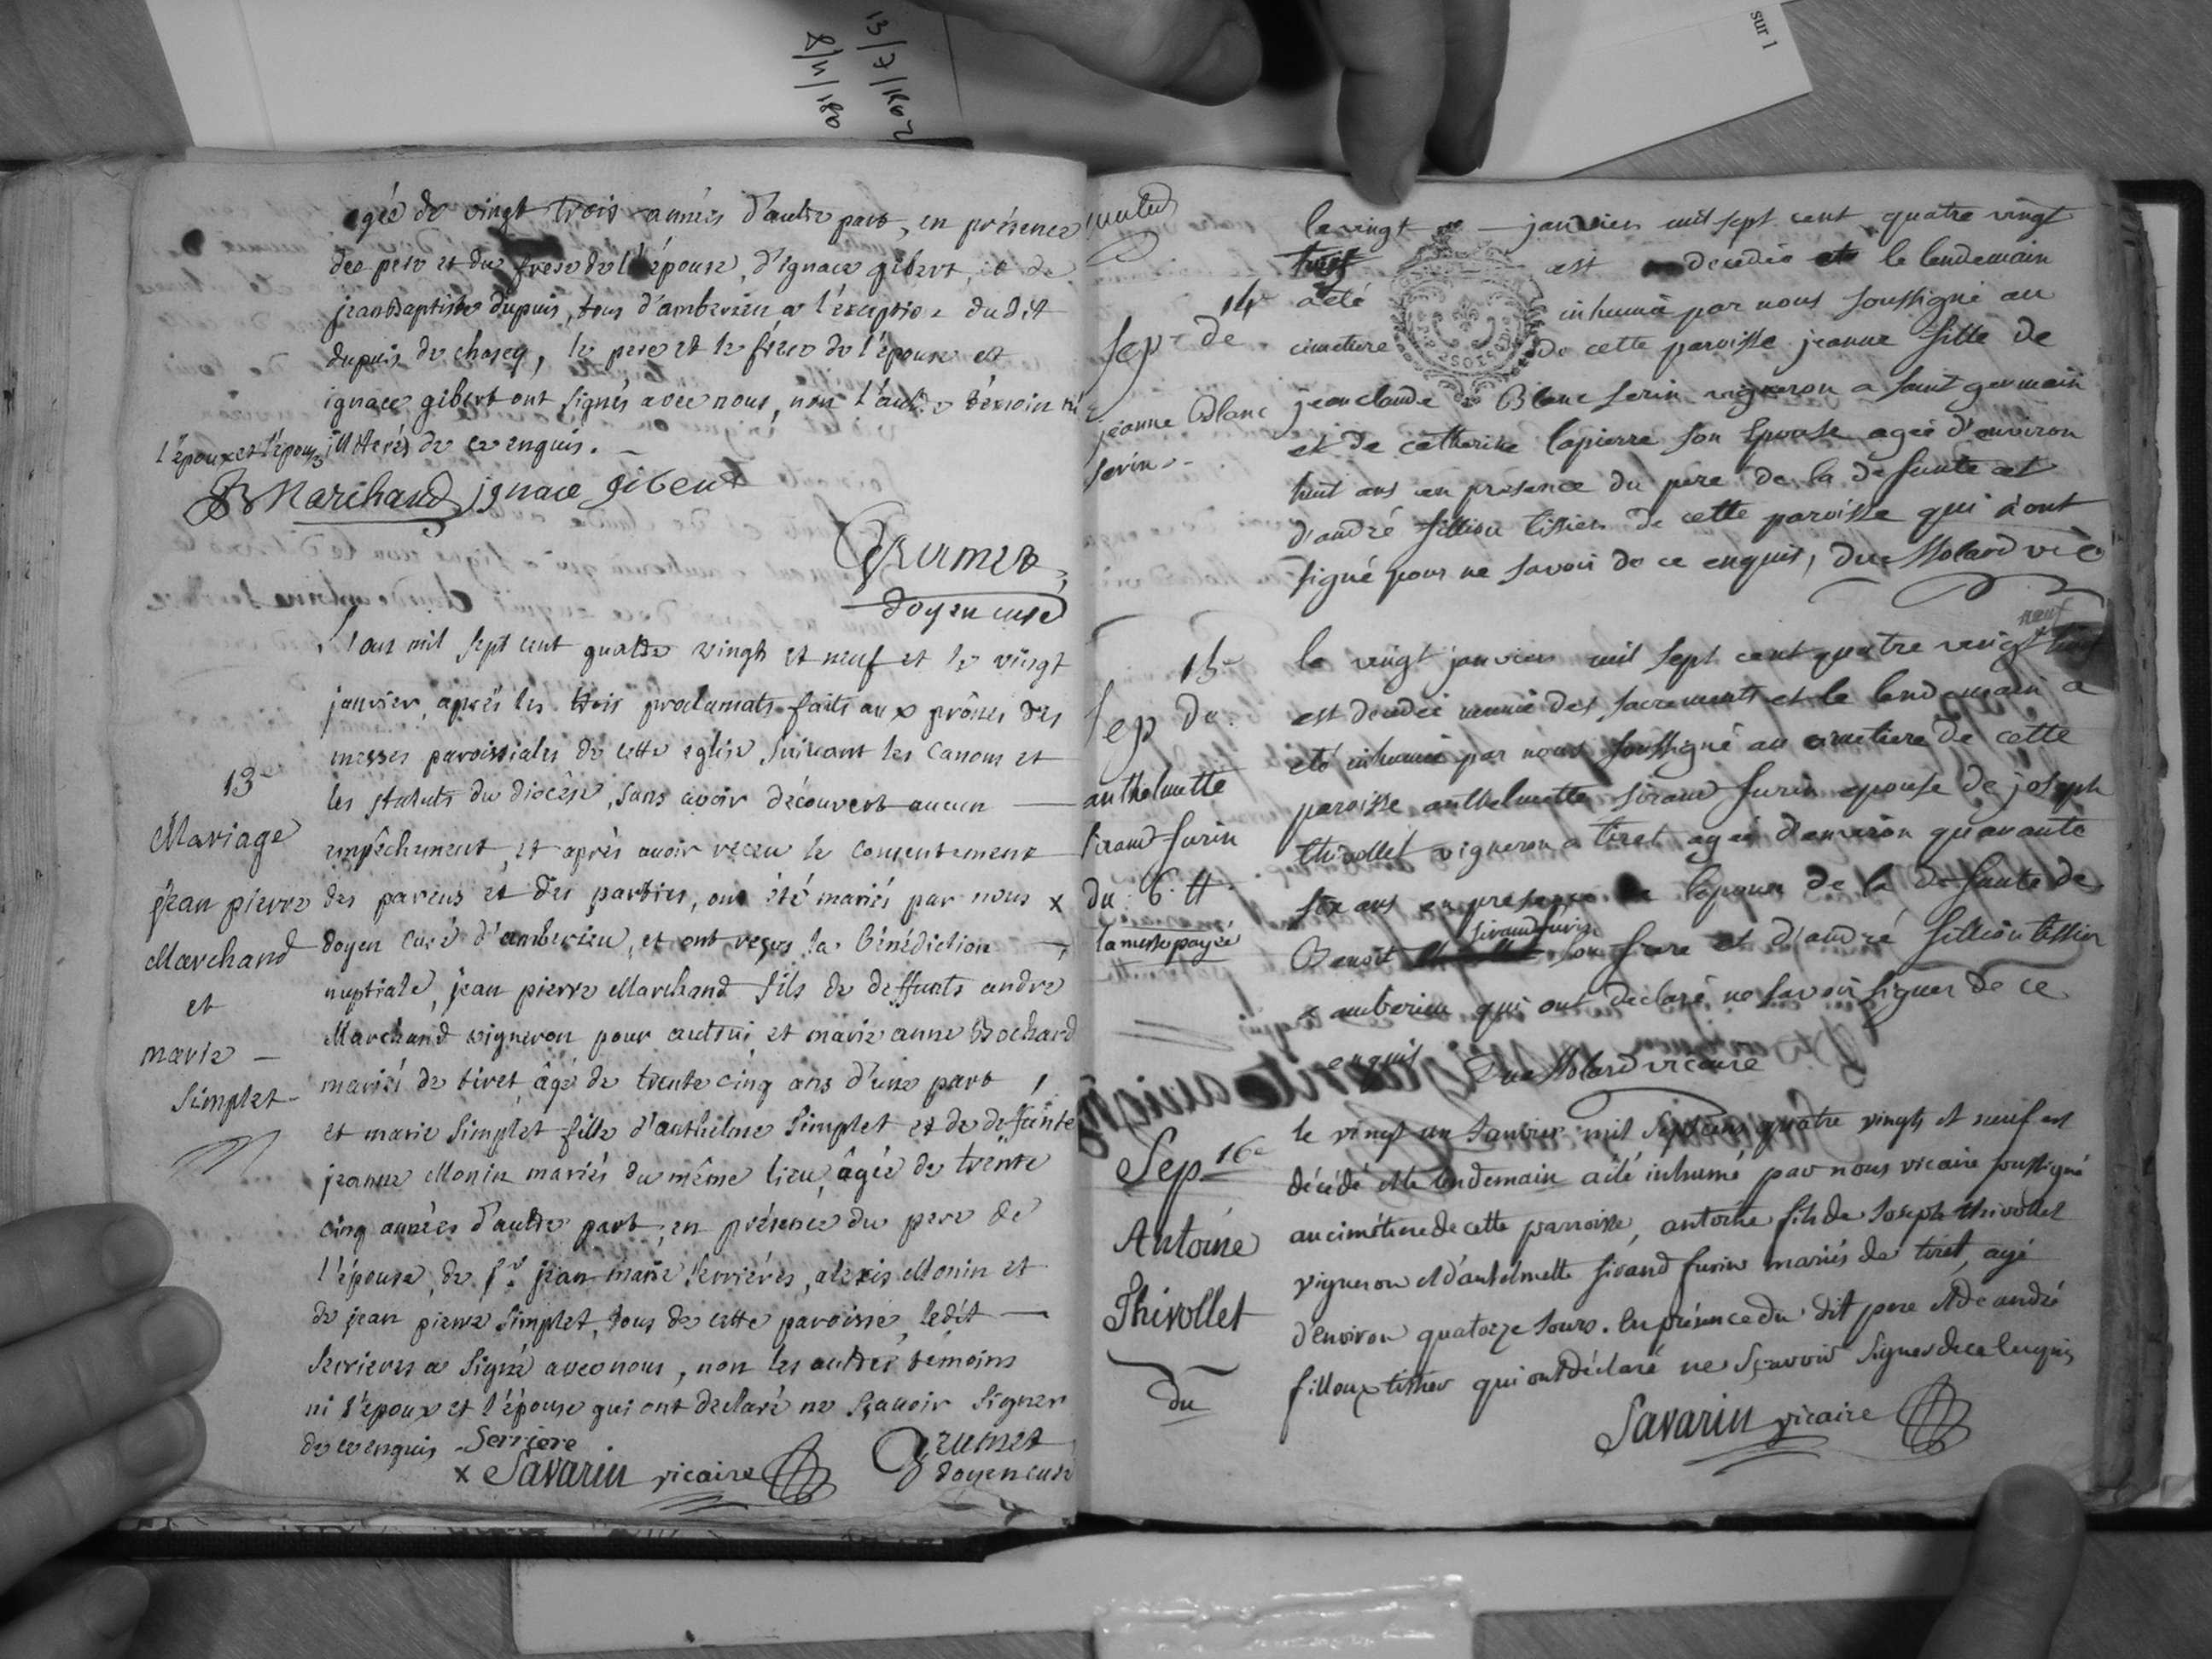 sur 1
13/7/1802
8/11/180
agée de vingt trois années d'autre part, en présence
des pere et du frere de l'épouse, d'ignace gibert, et de
jean baptiste dupuis, tous d'amberieu a l'exception dudit
dupuis de chasey, le pere et le frere de l'épouse et
ignace gibert ont signés avec nous, non l'autre témoin ni
l'époux et l'épouse illiterés de ce enquis.
Marchand ignace gibert
Grumet
doyen curé
13e
Mariage
jean pierre
Marchand
et
marie
Simplet
L'an mil sept cent quatre vingt et neuf et le vingt
janvier, après les trois proclamats faits aux prônes des
messes paroissiales de cette eglise suivant les canons et
les statuts du diocèse, sans avoir découvert aucun
empêchement, et après avoir receu le consentement
des parens et des parties, ont été mariés par nous x
doyen curé d'amberieu, et ont reçus la bénédiction
nuptiale, jean pierre Marchand fils de deffunts andre
Marchand vigneron pour autrui et marie anne Bochard
mariés de tiret, âgé de trente cinq ans d'une part,
et marie Simplet fille d'anthelme Simplet et de deffunte
jeanne Monin mariés du même lieu, âgée de trente
cinq années d'autre part, en présence du pere de
l'épouse, de sr jean marie Serrières, alexis Monin et
de jean pierre Simplet, tous de cette paroisse, ledit
Serrieres a signé avec nous, non les autres temoins
ni l'époux et l'épouse qui ont declaré ne sçavoir signer
de ce enquis Serriere
x Savarin vicaire Grumet
doyen curé
14e
Sepre de
jeanne Blanc
serin
le vingt janvier mil sept cent quatre vingt
est decedée et le lendemain
a eté inhumée par nous soussigné au
cimetiere de cette paroisse jeanne fille de
jean claude Blanc serin vigneron a saint germain
et de catherine lapierre son epouse agée d'environ
huit ans en presence du pere de la defunte et
d'andré fillion tissier de cette paroisse qui n'ont
signé pour ne savoir de ce enquis, Du Molard vic
15e
Sep de
anthelmette
sirand furin
du 6 tt
la messe payée
neuf
le vingt janvier mil sept cent quatre vingt
est decedée munie des sacrements et le lendemain a
eté inhumée par nous soussigné au cimetiere de cette
paroisse anthelmette sirand furin epouse de joseph
thivollet vigneron a tiret agée d'environ quarante
six ans en presence de l'epoux de la defunte de
sirand furin
Benoit son frere et d'andré fillion tissier
a amberieu qui ont declaré ne savoir signer de ce
enquis Du Molard vicaire
Sep 16e
Antoine
Thivollet
du
le vingt un Janvier mil Sept cens quatre vingts et neuf est
décédé et le lendemain a été inhumé par nous vicaire soussigné
au cimétiere de cette parroisse, antoine fils de Joseph thivollet
vigneron et d'antelmette sirand furin mariés de tiret, agé
d'environ quatorze jours. En présence du dit pere et de andré
filloux tissier qui ont déclaré ne sçavoir signer de ce enquis
Savarin vicaire